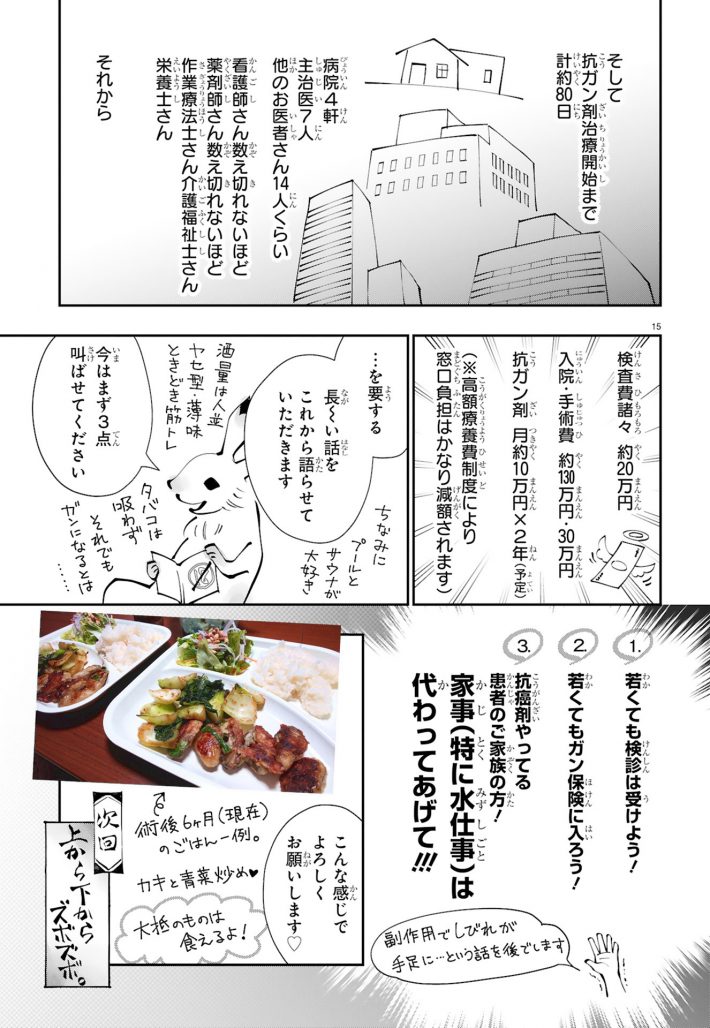 そして
抗ガン剤治療開始まで
計約80日
病院4軒
主治医7人
他のお医者さん14人くらい
看護師さん数え切れないほど
薬剤師さん数え切れないほど
作業療法士さん介護福祉士さん
栄養士さん
それから
15
検査費諸々 約20万円
入院・手術費 約130万円・30万円
抗ガン剤 月約10万円×2年(予定)
(※高額療養費制度により
窓口負担はかなり減額されます)
…を要する
長〜い話を
これから語らせて
いただきます
ちなみに
プールと
サウナが
大好き
酒量は人並
ヤセ型・薄味
ときどき筋トレ
今はまず3点
叫ばせてください
タバコは
吸わず
それでも
ガンになるとは
……
1.
若くても検診は受けよう!
2.
若くてもガン保険に入ろう!
3.
抗癌剤やってる
患者のご家族の方!
家事(特に水仕事)は
代わってあげて!!!
副作用でしびれが
手足に…という話を後でします
こんな感じで
よろしく
お願いします♡
術後6ヶ月(現在)
のごはん一例。
カキと青菜炒め♥
大抵のものは
食えるよ!
次回
上から下から
ズボズボ。